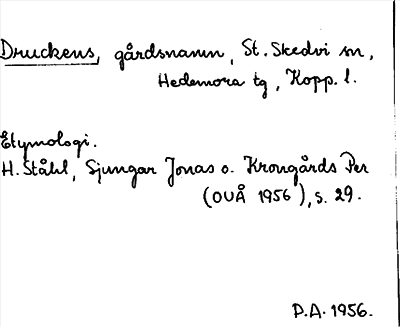 Druckens, gårdsnamn, St. Skedvi sn,
Hedemora tg, Kopp. l.
Etymologi.
H. Ståhl, Sjungar Jonas o. Krongårds Per
(OUÅ 1956), s. 29.
P.A. 1956.